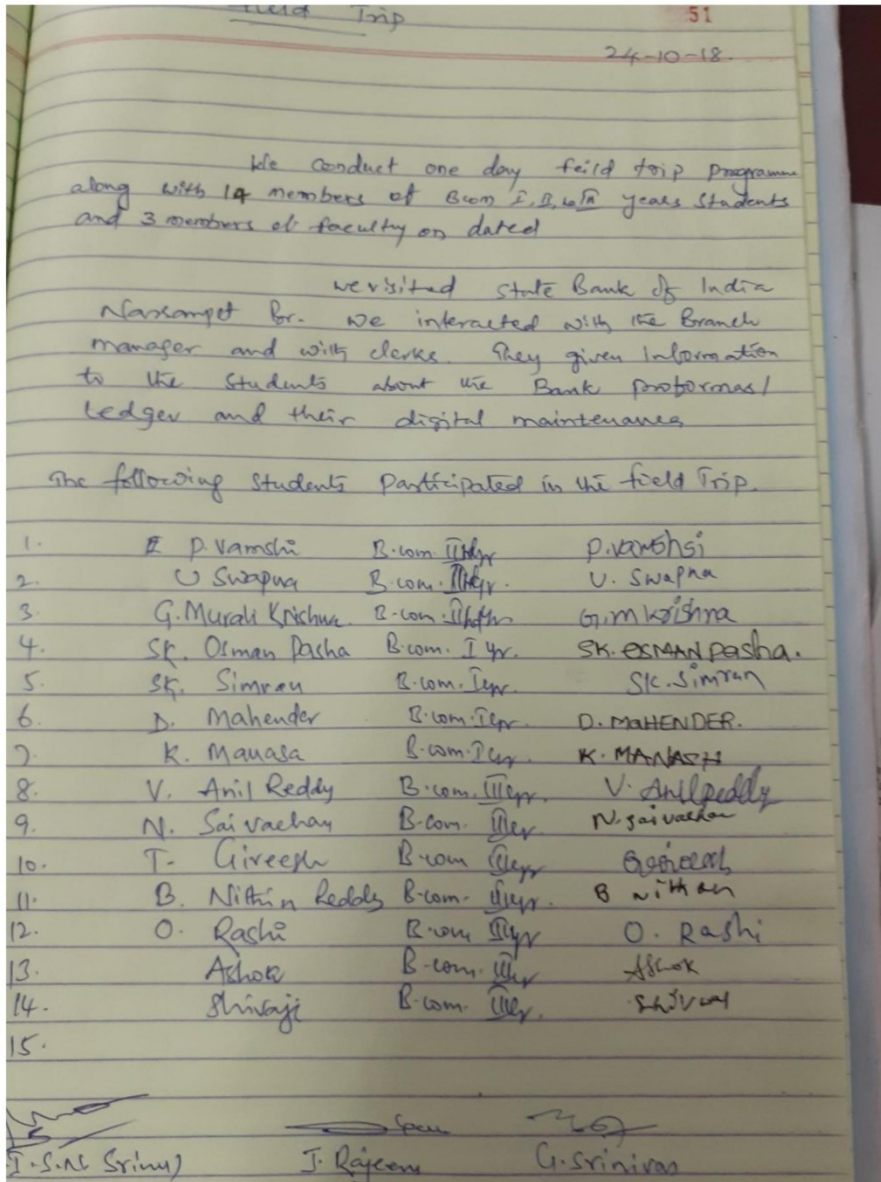 Field Trip 51
24-10-18.
We conduct one day feild trip programme
along with 14 members of B.com I, II, & III years students
and 3 members of faculty on dated
we visited State Bank of India
Narsampet Br. we interacted with the Branch
manager and with clerks. They given Information
to the students about the Bank proformas/
Ledger and their digital maintenance
The following students participated in the field Trip.
1. P. Vamshi B.com P. Vamshsi
2. U Swapna B.com. U. Swapna
3. G. Murali Krishna B.com. G. M Krishna
4. SK. Osman Pasha B.com. I yr. SK. OSMAN Pasha.
5. SK. Simran B.com. I yr. SK. Simran
6. D. Mahender B.com. I yr. D. MAHENDER.
7. K. Manasa B.com. I yr. K. MANASA
8. V. Anil Reddy B.com. III yr. V. Anil Reddy
9. N. Sai vachan B.com. N. saivachan
10. T. Gireesh B.com
11. B. Nithin Reddy B.com. B nithin
12. O. Rashi B.com O. Rashi
13. Ashok B.com. Ashok
14. Shivaji B.com.
15.
S.N. Srinu) G. Srinivas